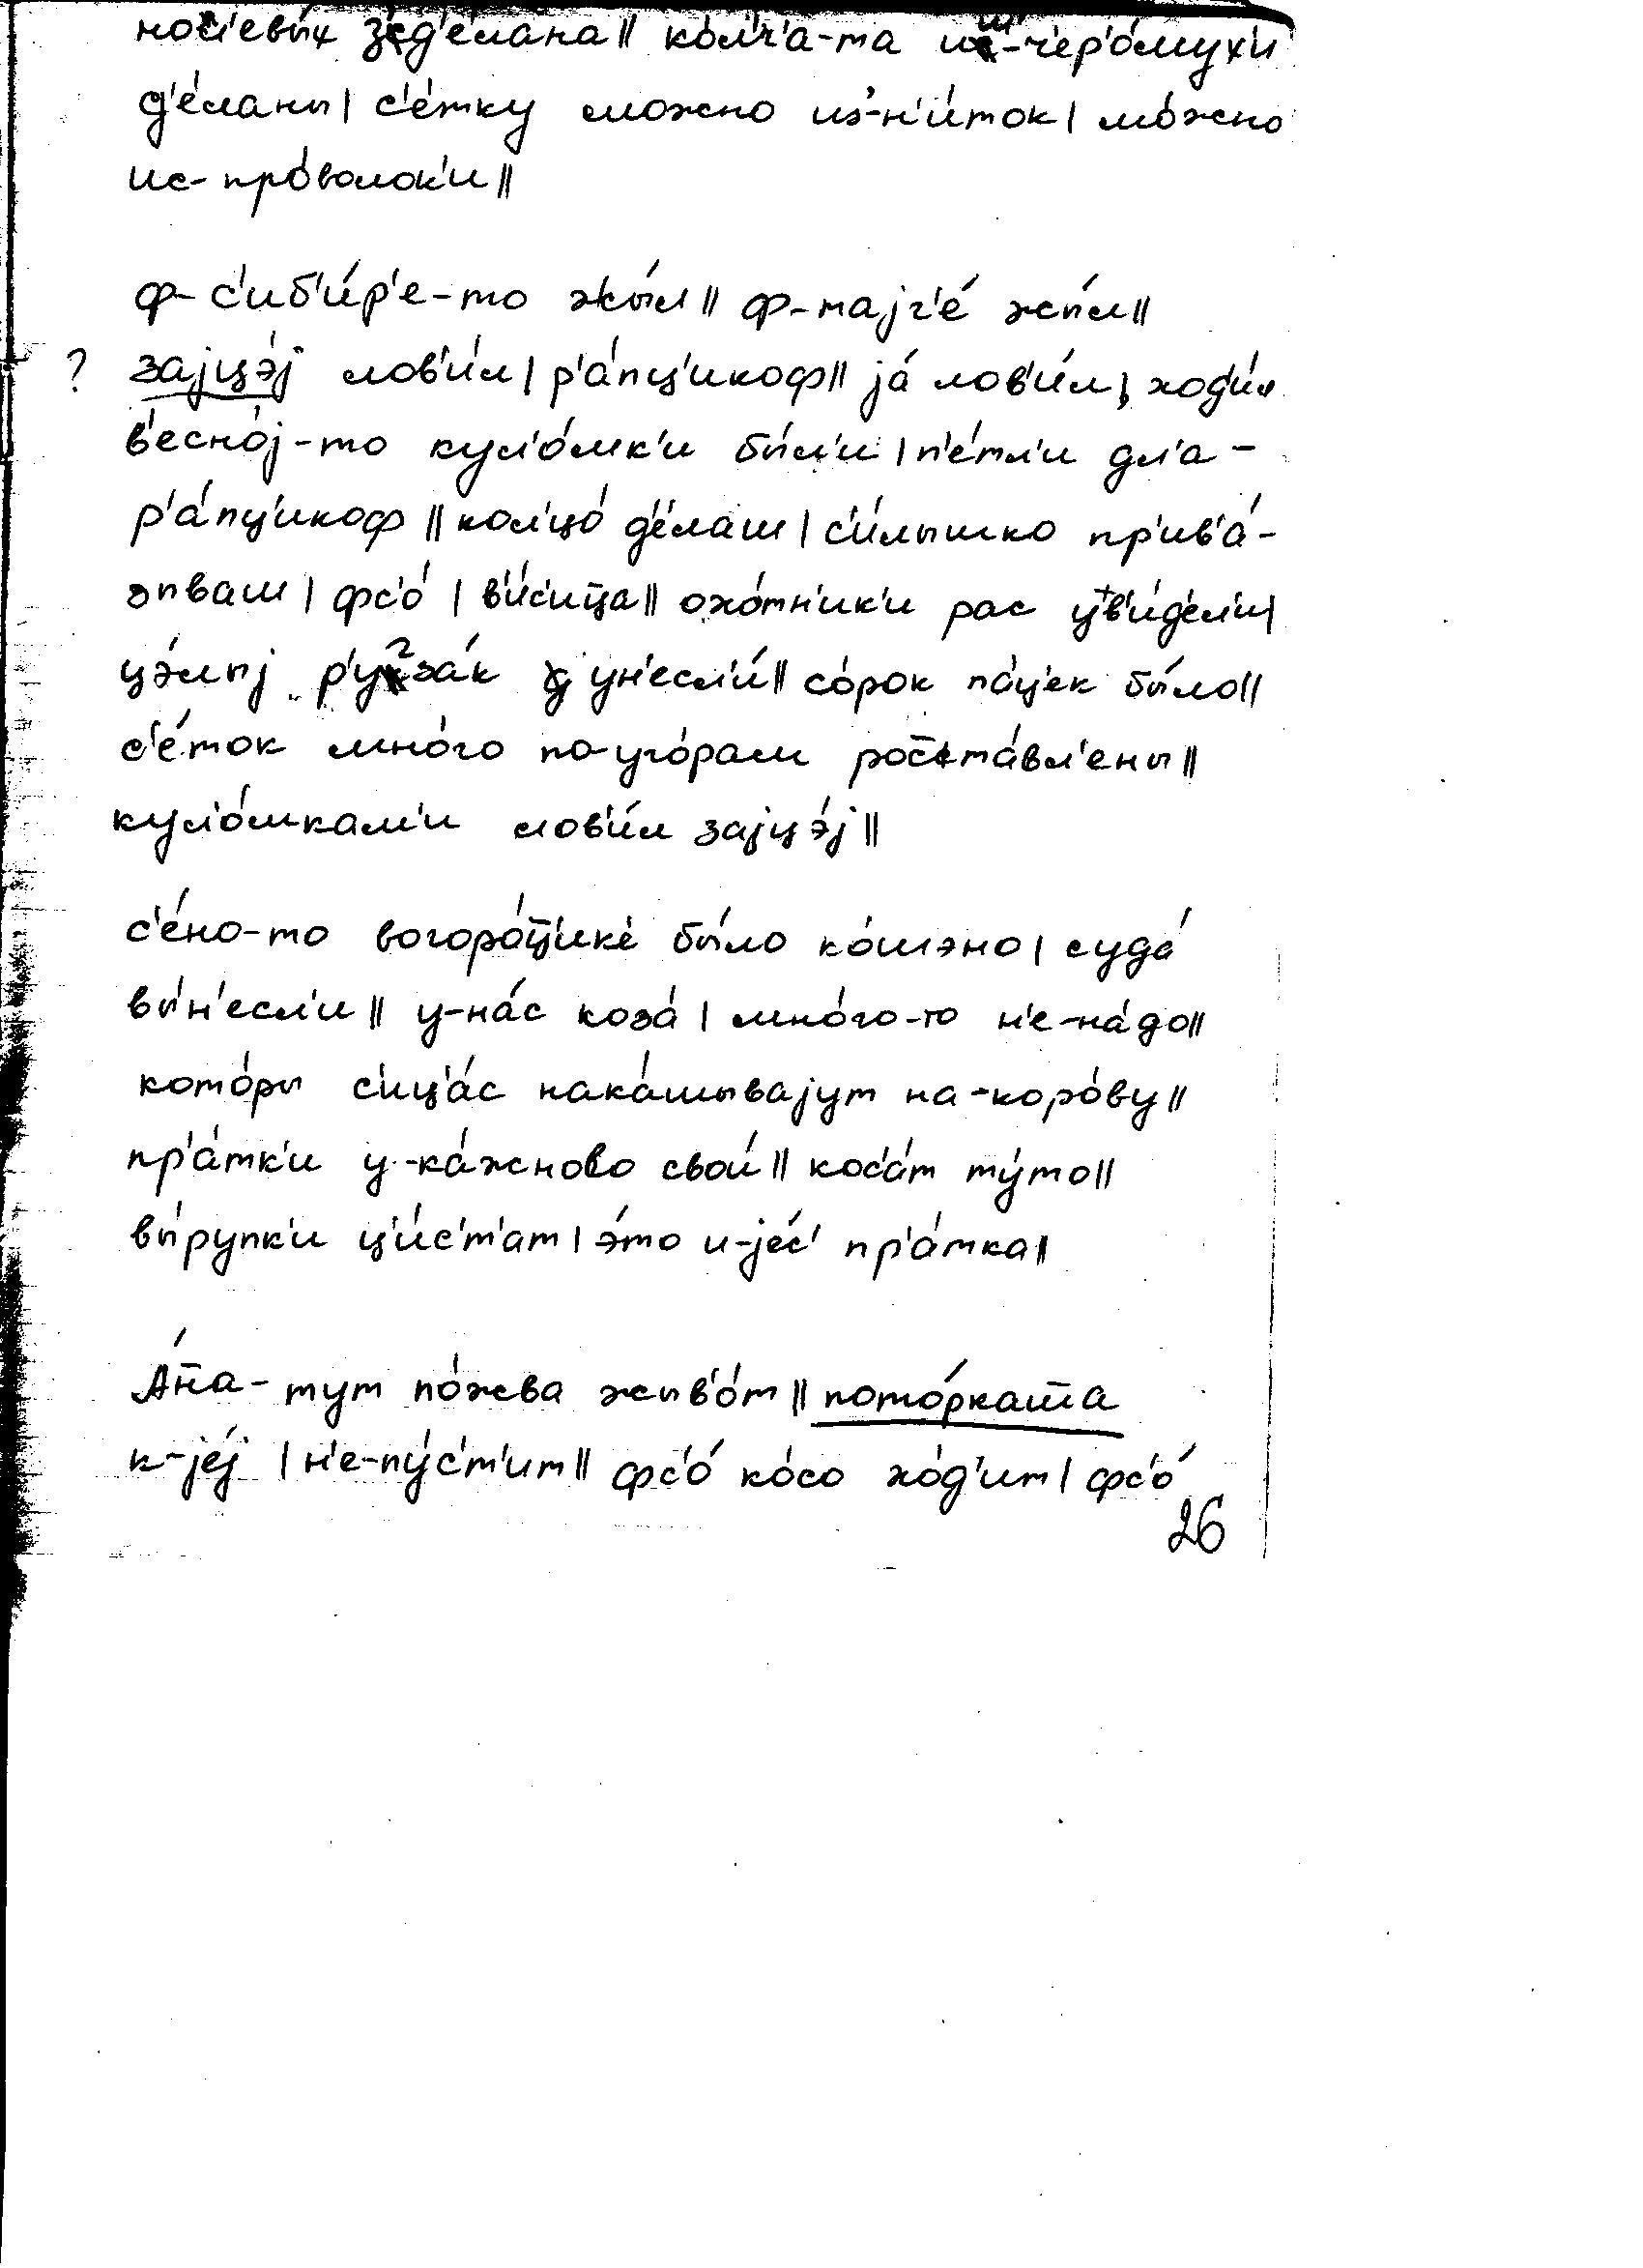 нос'евы́х з'д'е́лана || кол'ч'а́-та иш-ч'ер'о́мух'и
д'е́ланы | с'е́тку можно из'-н'и́ток | мо́жно
ис-про́волок'и ||
ф-с'иб'и́р'е-то жы́л || ф-тајг'е́ жы́л ||
? зајцэ́ј лов'и́л | р'а́пц'икоф || ја́ лов'и́л, ход'и́л
в'есно́ј-то кул'о́мк'и бы́л'и | п'е́тл'и дл'а-
р'а́пц'икоф || кол'цо́ д'е́лаш | с'и́лышко пр'ив'а́-
зываш | фс'о́ | в'ис'и́ц̄а || охо́тн'ик'и рас ув'и́д'ел'и |
цэ́лыј р'угза́к ун'есл'и́ || со́рок па́ц'ек бы́ло ||
с'е́ток мно́го по-уго́рам рос̄та́вл'ены ||
кул'о́мкам'и лов'и́л зајцэ́ј ||
с'е́но-то вогоро́ц̄'ик'е бы́ло ко́шэно | суда́
вы́н'есл'и || у-на́с коза́ | мно́го-то н'е-на́до ||
кото́ры с'иц'а́с нака́шывајут на-коро́ву ||
пр'а́тк'и у-ка́жново свои́ || кос'а́т ту́то ||
вы́рупк'и ц'и́с'т'ат | э́то и-је́с' пр'а́тка ||
А́н̄а-тут по́жва жыв'о́т || пото́ркат̄а
к-је́ј | н'е-пу́с'т'ит || фс'о́ ко́со хо́д'ит | фс'о́
26